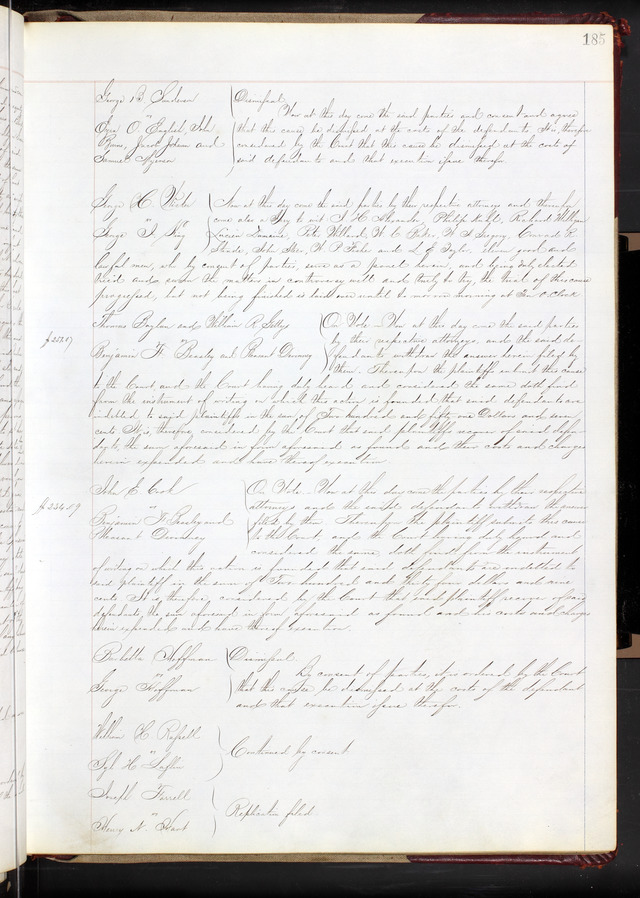 185
George B. Sanderson
vs
Ezra O. English, John
Ross, Jacob Johnson and
Samuel
Dismissed,
Now at this day come the said parties and consent and agree
that this cause be dismissed at the costs of the defendants. It is, therefore
considered by the Court that this cause be dismissed at the costs of
said defendants and that execution issue therefor
George C.
vs
George I. King
Now at this day come the said parties by their respective attorneys and thereupon
come also a Jury to wit, J. H. Alexander, Philip Kehl, Richard
Lucien Dunavin, Peter Willard, W. W. Parks, W. S. Gregory, Conrad R.
John W. P. and L. E. eleven good and
lawful men, who by consent of parties, serve as a pannel eleven, and being duly elected
tried and sworn the matters in controversy well and truly to try, the trial of this cause
progressed, but not being finished is laid over until to morrow morning at Ten O'Clock
$251.07
Thomas and William R. Gettys
vs
Benjamin F. Beazley and Pleasant Downing
On Note. Now at this day come the said parties
by their respective attorneys, and the said de-
fendants withdraw the answer herein filed by
them. Thereupon the plaintiffs submit this cause
to the Court and the Court having duly heard and considered the same doth find
from the instrument of writing on which this action is founded that said defendants are
indebted to said plaintiffs in the sum of Two hundred and fifty one Dollars and seven
cents It is, therefore considered by the Court that said plaintiffs recover of said defen-
dants the sum aforesaid in form aforesaid as found and their costs and charges
herein expended and have thereof execution.
$234.09
John E. Cook
vs
Benjamin F. Beazley and
Pleasant Downing
On Note. Now at this day come the parties by their respective
attorneys and the said defendants withdraw the answer
filed by them. Thereupon the plaintiff submits this cause
to the Court, and the Court having duly heard and
considered the same doth find from the instrument
of writing on which this action is founded that said defendants are indebted to
said plaintiff in the sum of Two hundred and thirty four dollars and nine
cents It is therefore, considered by the Court that said plaintiff recover of said
defendants, the sum aforesaid in form aforesaid as found and his costs and charges
herein expended and have thereof execution.
Hoffman
vs
George Hoffman
Dismissed.
By consent of parties, it is ordered by the Court
that this cause be dismissed at the costs of the defendant
and that execution issue therefor.
William H. Russell
vs
Syl. H. Laflin
Continued by consent
Joseph Farrell
vs
Henry N. Hart
Replication filed